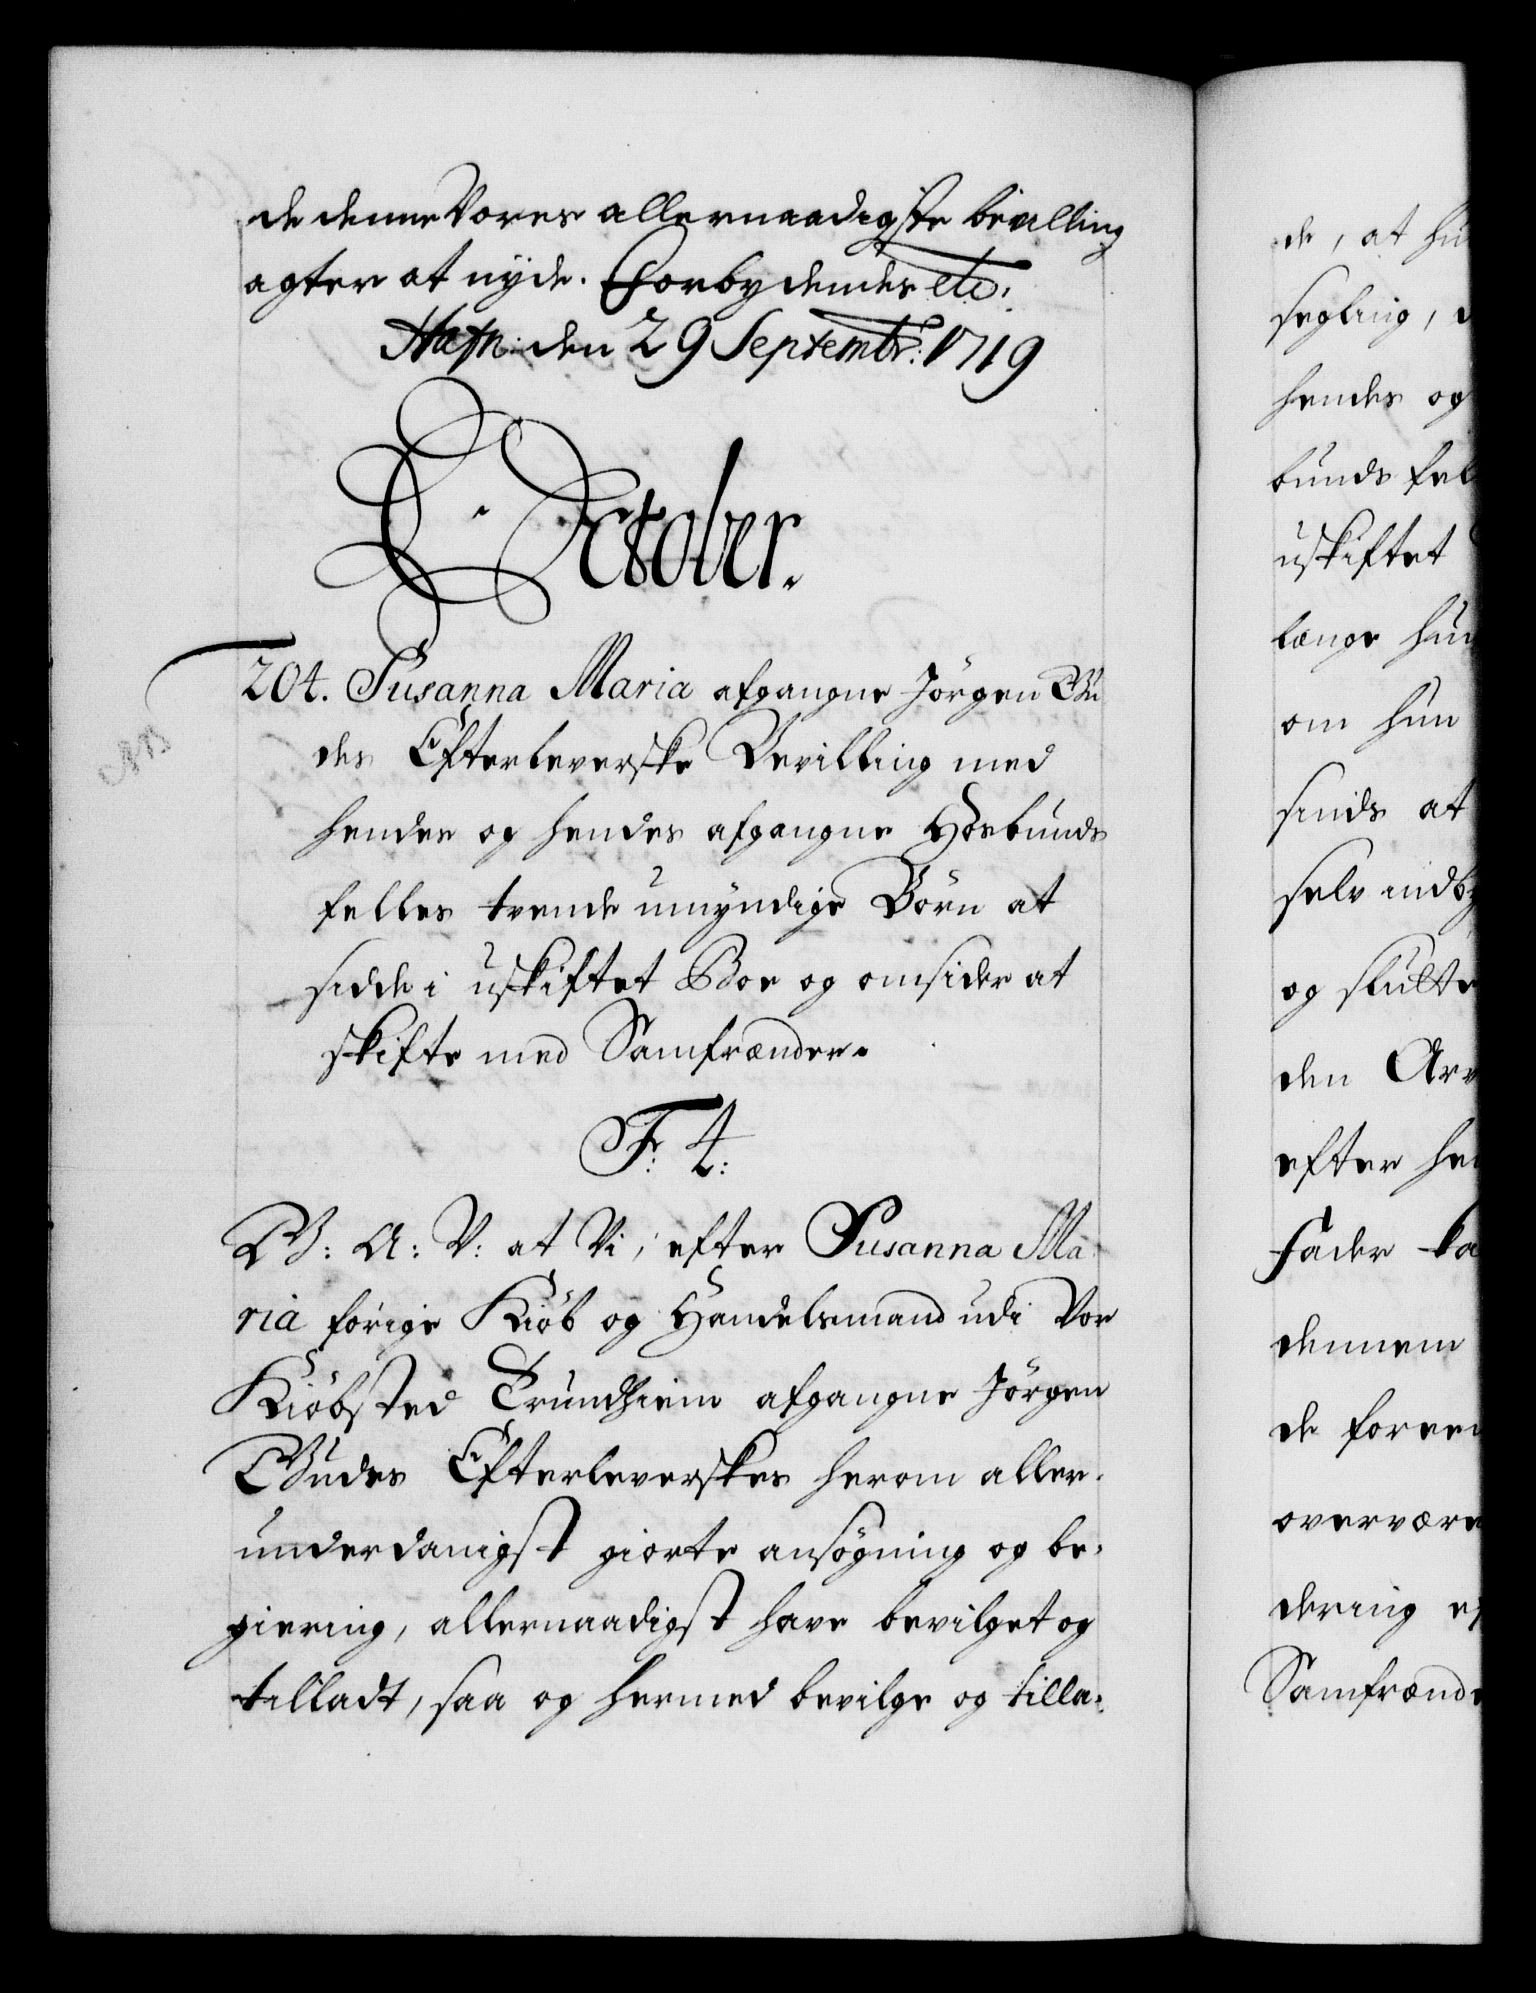 de denne Vores allernaadigste bevilling
agter at nyde. Forbydendes etc:
Hafn: den 29 Septembr: 1719
October.
204. Susanna Maria afgangne Jörgen Bu
des Efterleverske Bevilling med
hendes og hendes afgangne Hosbunds
felles trende umyndige Börn at
sidde i uskiftet Boe og omsider at
skifte med Samfrænder.
F: 4:
G: A: V: at Vi, efter Susanna Ma
ria forige Kiöb og Handelsmand udi Vor
Kiöbsted Trundhiem afgangne Jörgen
Budes Efterleverskes herom aller-
underdanigst giorte ansögning og be-
giering, allernaadigst have bevilget og
tilladt, saa og hermed bevilge og tilla-
NB
de, at hu
segling,
hendes og
bunds fel
uskiftet
længe hun
om hun
sinds at
selv indby
og slutte
den Arv
efter he
Fader
dennem
de
overvære
dering
Samfrænde